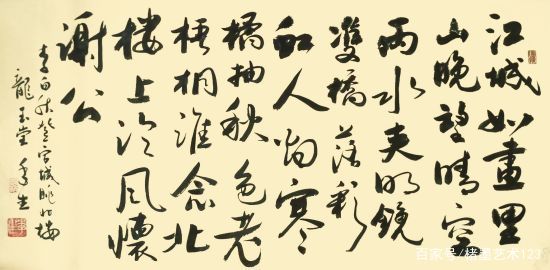 江城如畫里
山晚望晴空
兩水夾明鏡
雙橋落彩
虹人烟寒
橘柚秋色老
梧桐誰念北
樓上临風懷
謝公
李白秋登宣城眺北樓
龍玉堂
百家号/楮墨艺术123